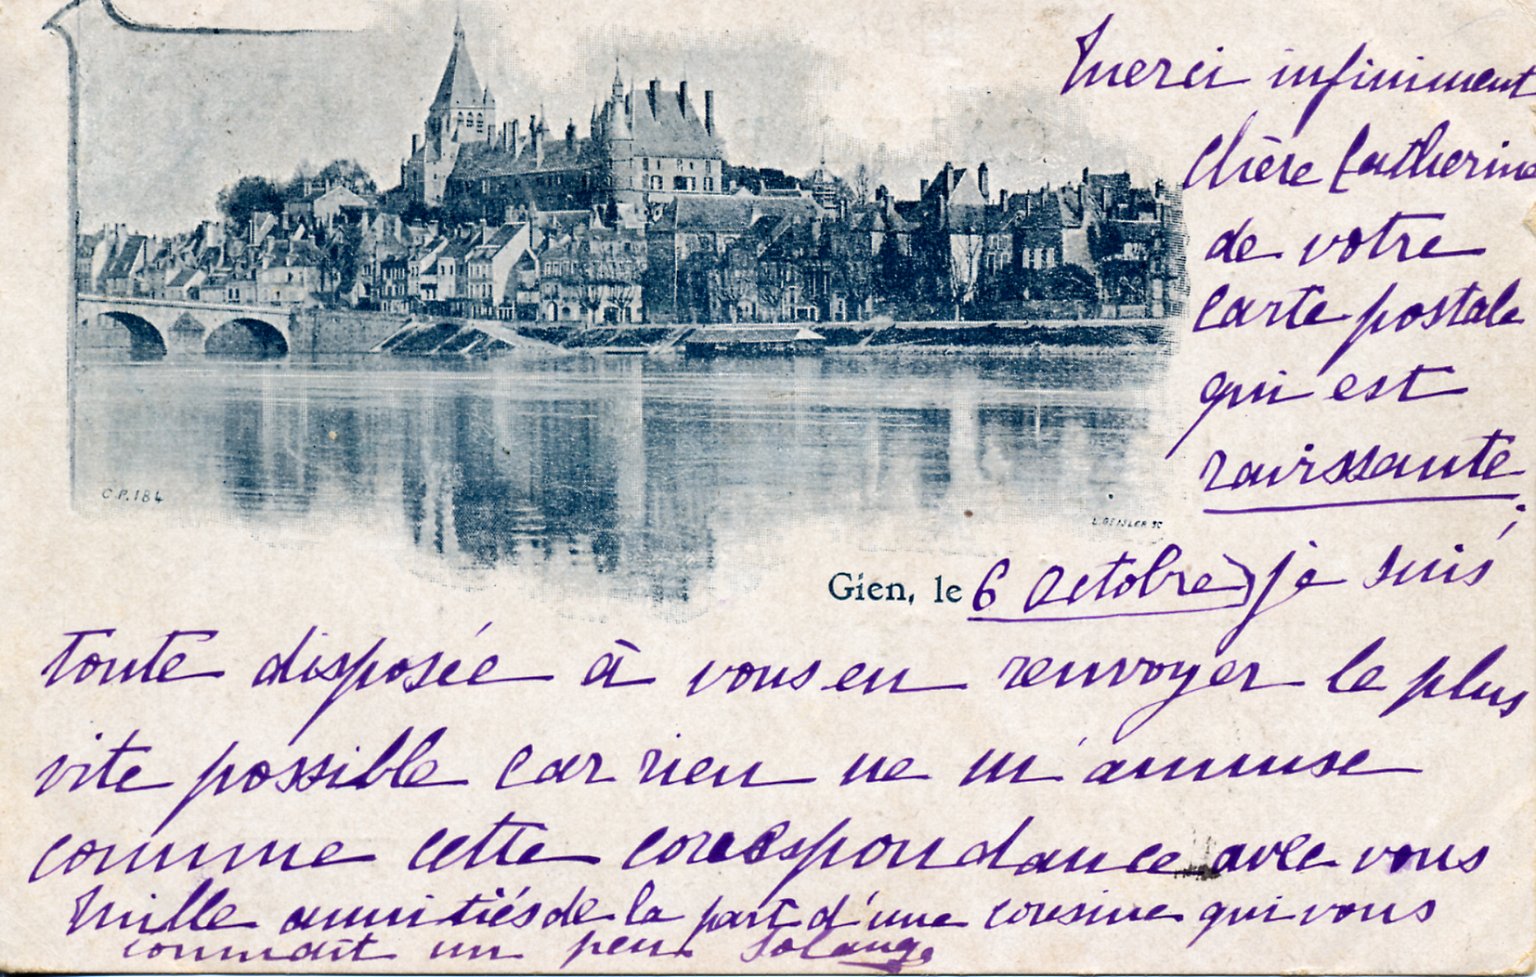 Merci infiniment
chère Catherine
de votre
carte postale
qui est
ravissante.
C.P. 184
L. GEISLER SC
Gien, le 6 Octobre je suis
toute disposée à vous en renvoyer le plus
vite possible car rien ne m'amuse
comme cette correspondance avec vous
Mille amitiés de la part d'une cousine qui vous
connait un peu Solange